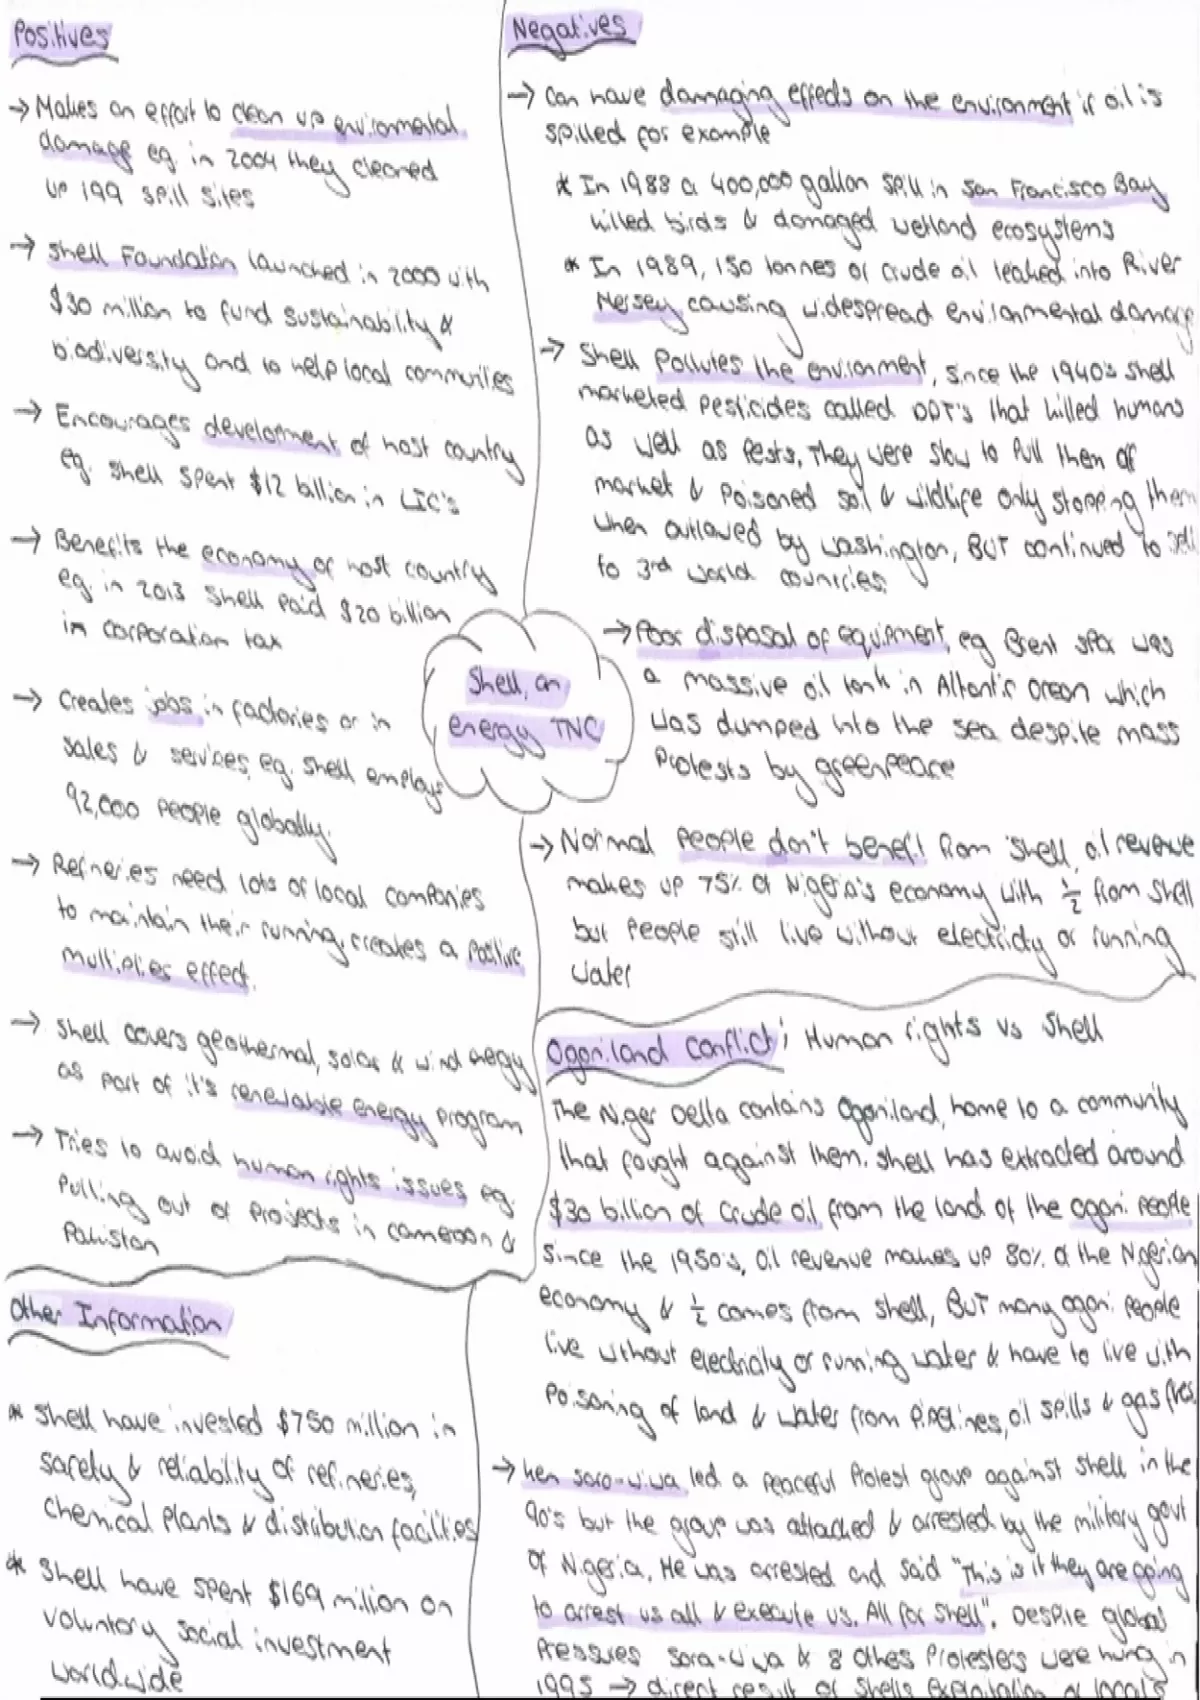 Positives
→ Makes an effort to clean up enviromental
damage eg. in 2004 they cleaned
up 199 spill sites
→ Shell Foundation launched in 2000 with
$30 million to fund sustainability &
biodiversity and to help local communities
→ Encourages development of host country
eg. Shell spent $12 billion in LIC's
→ Benefits the economy of host country
eg. in 2013 Shell paid $20 billion
in corporation tax
→ Creates jobs in factories or in
sales & services, eg. Shell employs
92,000 people globally.
→ Refineries need lots of local companies
to maintain their running, creates a positive
multiplies effect.
→ Shell covers geothermal, solar & wind energy
as part of it's renewable energy program
→ Tries to avoid human rights issues eg.
pulling out of projects in cameroon &
Pakistan
Other Information
* Shell have invested $750 million in
safety & reliability of refineries,
chemical plants & distribution facilities
* Shell have spent $169 million on
voluntary social investment
worldwide
Shell, an
energy TNC
Negatives
→ Can have damaging effects on the environment if oil is
spilled for example
* In 1988 a 400,000 gallon spill in San Francisco Bay
killed birds & damaged wetland ecosystems
* In 1989, 150 tonnes of crude oil leaked into River
Mersey causing widespread environmental damage
→ Shell pollutes the environment, since the 1940's shell
marketed pesticides called DDT's that killed humans
as well as pests. They were slow to pull them off
market & poisoned soil & wildlife only stopping them
when outlawed by Washington, BUT continued to sell
to 3rd world countries.
→ Poor disposal of equipment, eg Brent spar was
a massive oil tank in Atlantic Ocean which
was dumped into the sea despite mass
protests by greenpeace
→ Normal people don't benefit from Shell, oil revenue
makes up 75% of Nigeria's economy with ½ from Shell
but people still live without electricity or running
water
Ogoniland Conflict; Human rights vs Shell
The Niger Delta contains Ogoniland, home to a community
that fought against them. Shell has extracted around
$30 billion of crude oil from the land of the ogoni people
since the 1950's, oil revenue makes up 80% of the Nigerian
economy & ½ comes from Shell, BUT many ogoni people
live without electricity or running water & have to live with
poisoning of land & water from pipelines, oil spills & gas fires
→ Ken saro-wiwa led a peaceful protest group against Shell in the
90's but the group was attacked & arrested by the military govt
of Nigeria. He was arrested and said "This is it they are going
to arrest us all & execute us. All for Shell". Despite global
pressures sara-wiwa & 8 other protesters were hung in
1995 → direct result of Shells exploitation of locals